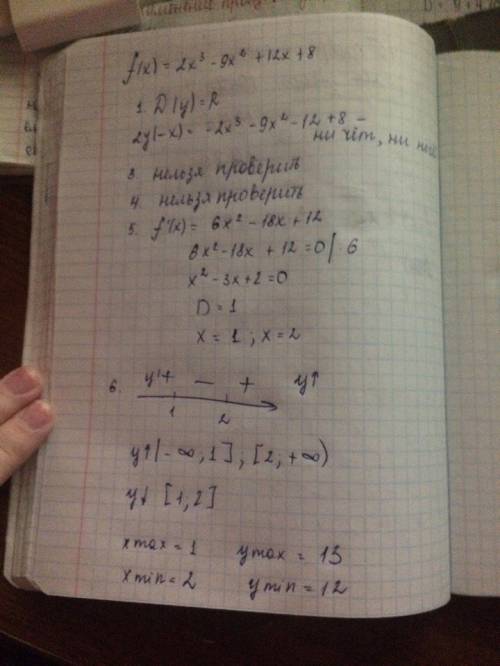 f(x) = 2x³ - 9x² + 12x + 8
1. D(y) = R
2 y(-x) = -2x³ - 9x² - 12 + 8 -
ни чёт, ни
3. нельзя проверить
4. нельзя проверить
5. f'(x) = 6x² - 18x + 12
6x² - 18x + 12 = 0 /: 6
x² - 3x + 2 = 0
D = 1
x = 1 ; x = 2
6. y' + - + y↑
1 2
y↑ (-∞; 1] ; [2; +∞)
y↓ [1, 2]
x max = 1 y max = 13
x min = 2 y min = 12